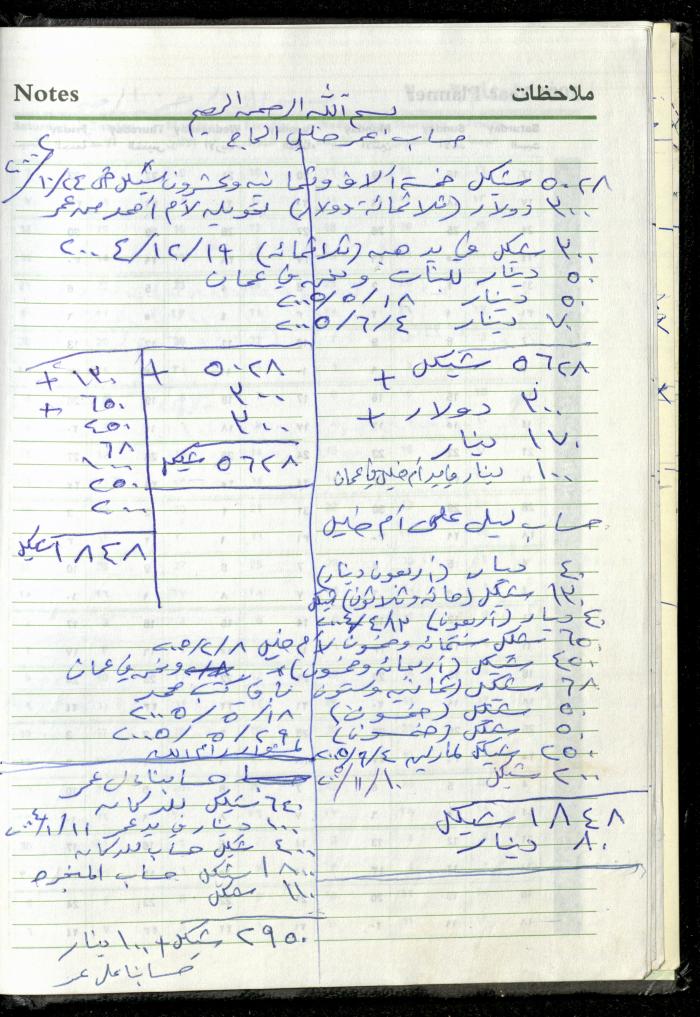 Notes ملاحظات
بسم الله الرحمن الرحيم
حساب عمر خليل الحاج
٥٠٢٨ شيكل خمسة آلاف وثمانية وعشرون شيكل ١٠/٢٤
٣٠٠ دولار (ثلاثمائة دولار) تحويله لأم أحمد من عمر
٣٠٠ شيكل في يد هبه (ثلاثمائه) ٢٠٠٤/١٢/١٩
٥٠ دينار للبنات ونحن في عمان
٥٠ دينار ٢٠٠٥/٥/١٨
٧٠ دينار ٢٠٠٥/٦/٤
٥٦٢٨ شيكل +
٣٠٠ دولار +
١٧٠ دينار
١٠٠ دينار في يد أم خليل في عمان
٥٠٢٨ +
٣٠٠
٣٠٠
٥٦٢٨ شيكل
١٣٠ +
٦٥٠ +
٤٥٠
٦٨
١٠٠
٢٥٠
٢٠٠
١٨٤٨ شيكل
حساب ليلى على أم خليل
٤٠ دينار (أربعون دينار)
١٣٠ شيكل (مائه وثلاثون) شيكل
٤٠ دينار (أربعون)
٦٥٠ شيكل ستمائه وخمسون لأم خليل ٢٠٠٥/٢/٨
٤٥٠ شيكل (أربعمائه وخمسون) ونحن في عمان
٦٨ شيكل (ثمانيه وستون)
٥٠ شيكل (خمسون) ٢٠٠٥/٥/١٨
٥٠ شيكل (خمسون) ٢٠٠٥/٥/٢٩ لمشوار رام الله
٢٥٠ شيكل ٢٠٠٥/٦/٤
٢٠٠ شيكل ١١/١٠
١٨٤٨ شيكل
٨٠ دينار
حسابنا على عمر
٦٤٠ شيكل للدكانه
١٠٠ دينار في يد عمر ١/١١
٤٠٠ شيكل حساب للدكانه
١٨٠٠ شيكل حساب المنجره
١١٠ شيكل
٢٩٥٠ شيكل + ١٠٠ دينار
حسابنا على عمر